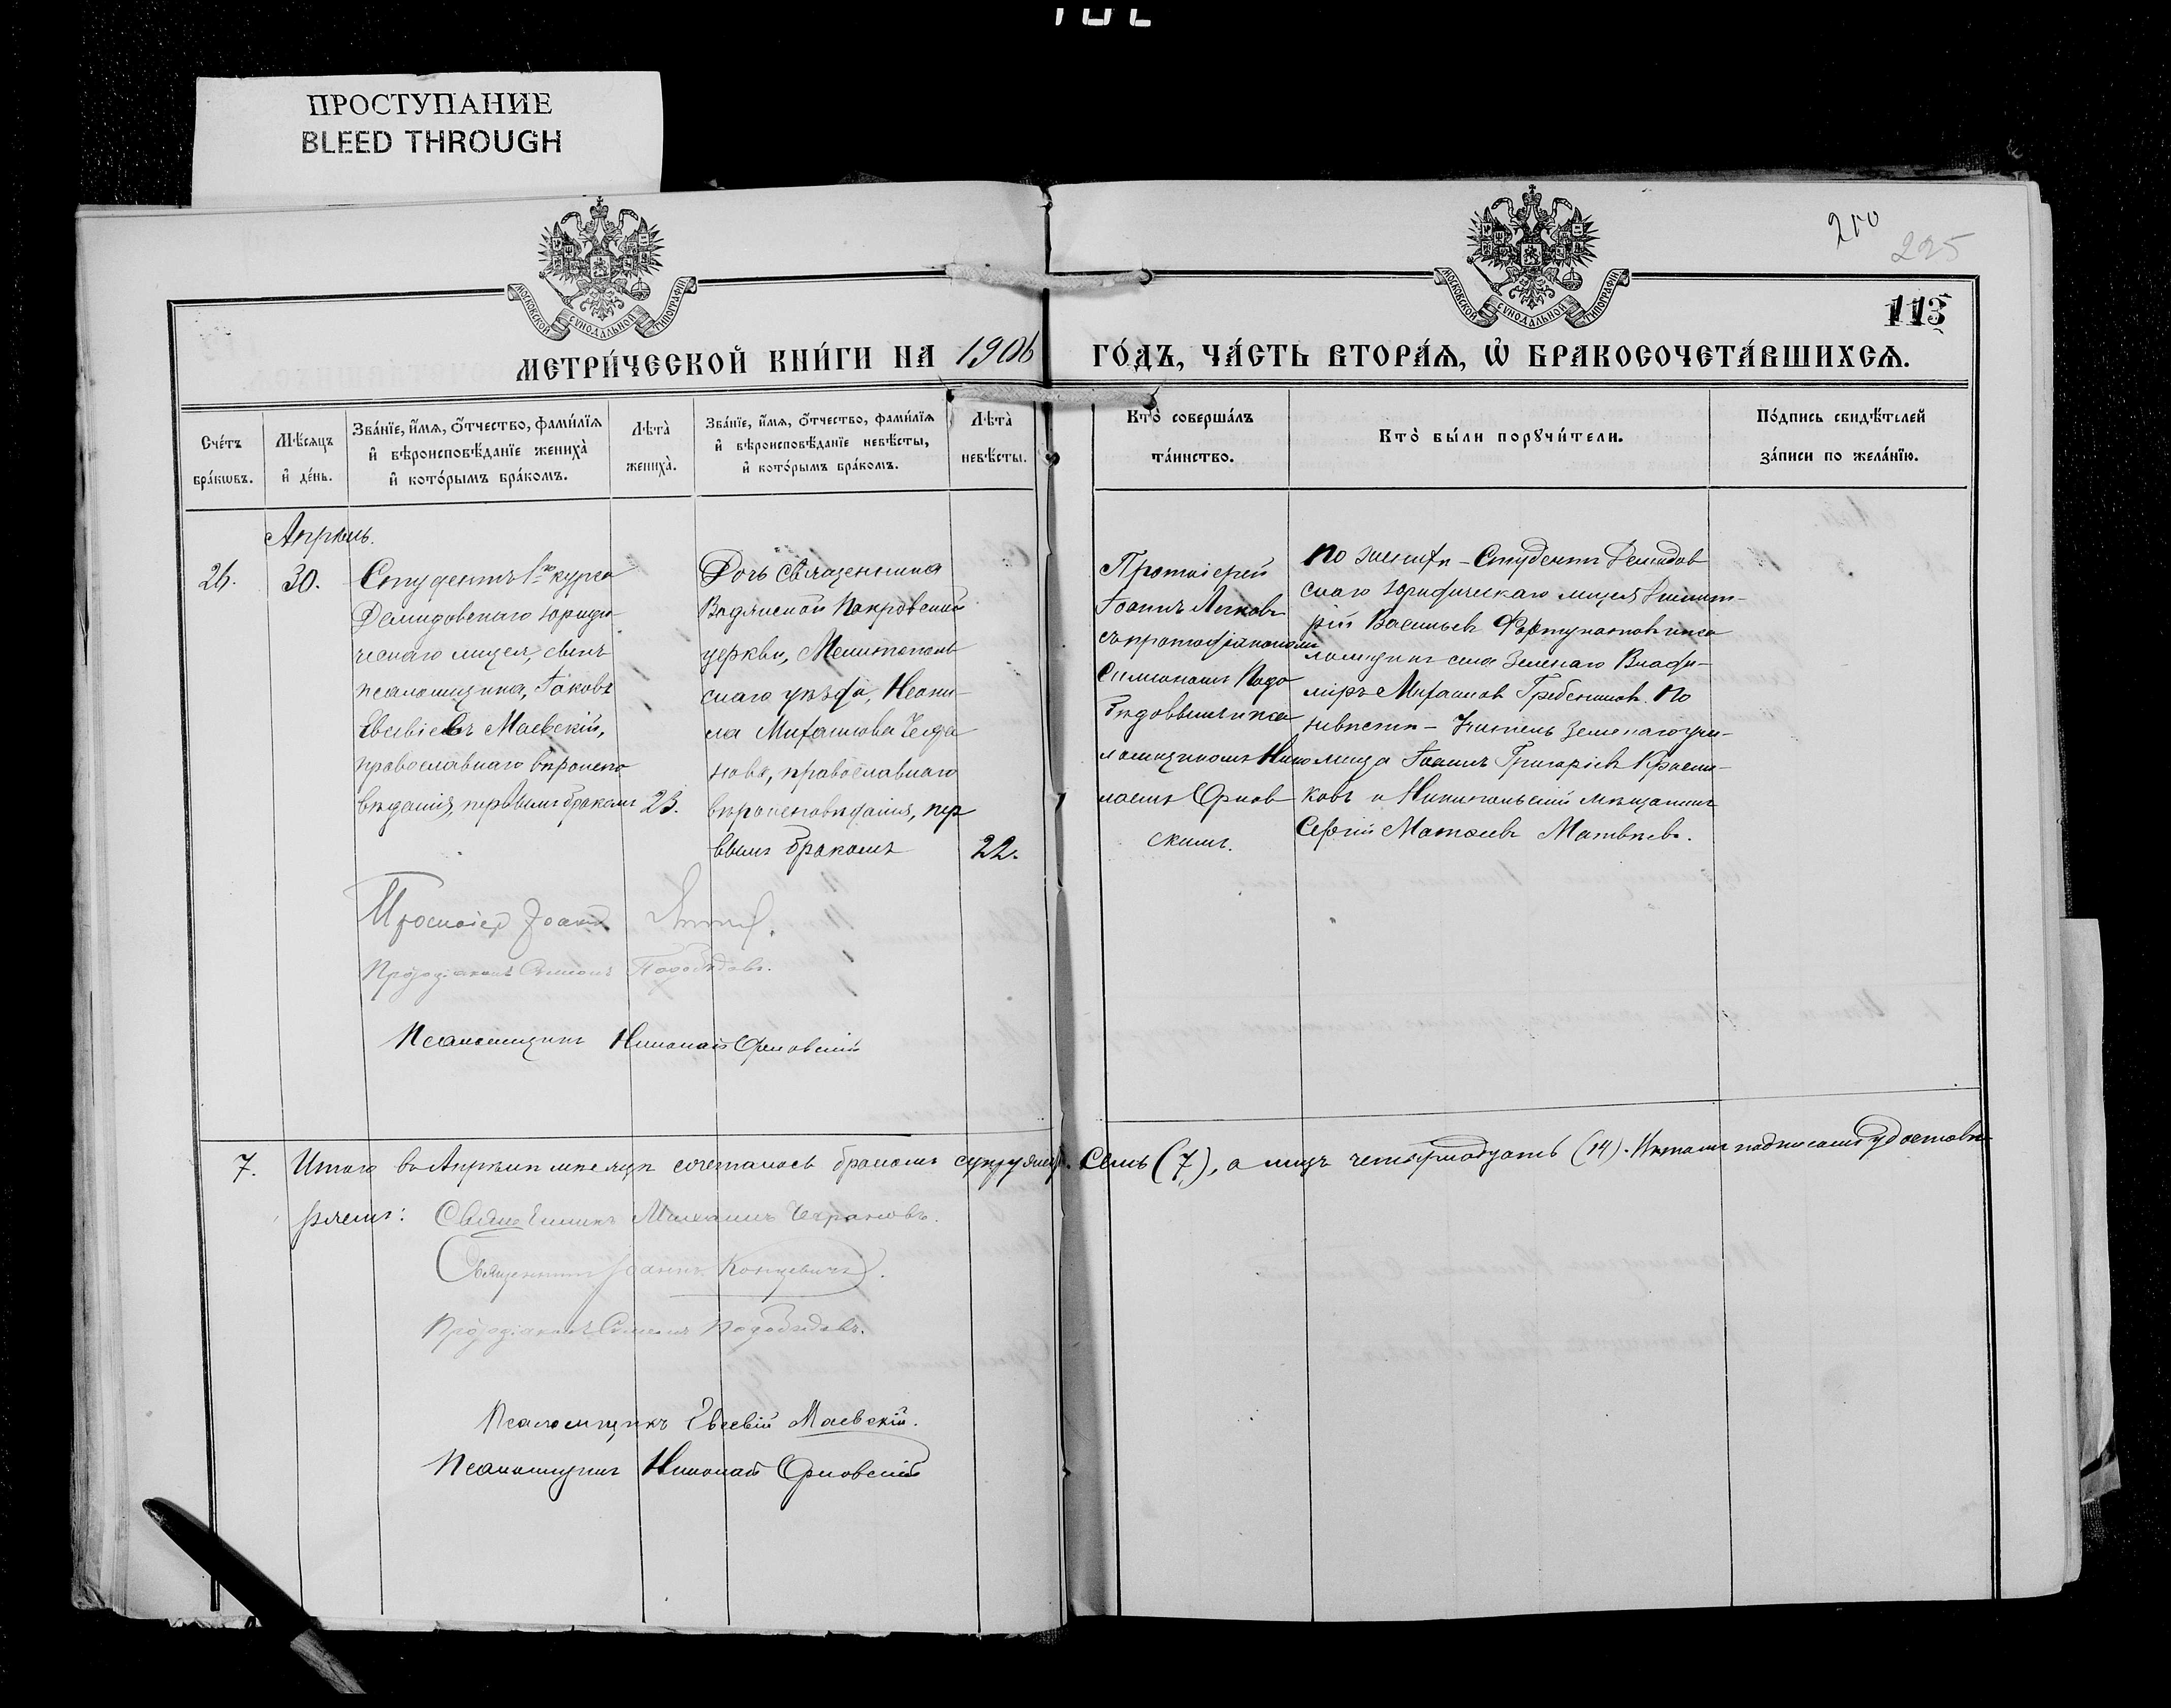 ПРОСТУПАНИЕ
BLEED THROUGH
200
225
113
МОСКОВСКОЙ СѴНОДАЛЬНОЙ ТИПОГРАФІИ
МОСКОВСКОЙ СѴНОДАЛЬНОЙ ТИПОГРАФІИ
МЕТРИ́ЧЕСКОЙ КНИ́ГИ НА 1906 ГО́ДЪ, ЧА́СТЬ ВТОРА́Ѧ, Ѡ҆ БРАКОСОЧЕТА́ВШИХСѦ.
Сче́тъ
бра́кѡвъ.
Мѣ́сяцъ
и҆ де́нь.
Зва́нїе, и҆́мѧ, ѻ҆́тчество, фами́лїѧ
и҆ вѣроисповѣ́данїе жениха̀
и҆ кото́рымъ бра́комъ.
Лѣта̀
жениха̀.
Зва́нїе, и҆́мѧ, ѻ҆́тчество, фами́лїѧ
и҆ вѣроисповѣ́данїе невѣ́сты,
и҆ кото́рымъ бра́комъ.
Лѣта̀
невѣ́сты.
Кто̀ соверша́лъ
та́инство.
Кто̀ бы́ли порꙋчи́тели.
По́дпись свидѣ́телей
за́писи по жела́нїю.
Апрѣль.
26.
30.
Студентъ 1го курса
Демидовскаго юриди-
ческаго лицея, сынъ
псаломщика, Іаковъ
Евсевіевъ Маевскій,
православнаго вѣроиспо
вѣданія, первымъ бракомъ
23.
Дочь священника
Водянской Покровской
церкви, Мелитополь
скаго уѣзда, Неони-
ла Михаилова
нова, православнаго
вѣроисповѣданія, пер
вымъ бракомъ
22.
Протоіерей
Іоаннъ
съ протодіакономъ
Симеономъ Подо
бѣдовымъ и пса
ломщикомъ Нико
лаемъ Орлов
скимъ.
По женихѣ – Студентъ Демидов
скаго Юридическаго лицея Димит-
рій Васильев Фортунатов и пса
ломщикъ села Зеленаго Влади-
міръ Михаилов Гребенников. По
невѣстѣ – Учитель Земскаго учи-
лища Іоаннъ Григорьев
ковъ и Никопольскій мѣщанинъ
Сергій Матвѣевъ.
Протоіер Іоаннъ
Протодіаконъ Симеонъ Подобѣдовъ.
Псаломщикъ Николай Орловскій
7. Итого въ Апрѣлѣ мѣсяцѣ сочеталось бракомъ супружеств. Семь (7), а лицъ четырнадцать (14). Итогъ подписомъ удостовѣ-
ряемъ: Священникъ Михаилъ
Священникъ Іоаннъ Концевичъ.
Протодіаконъ Симеонъ Подобѣдовъ.
Псаломщикъ Евсевій Маевскій.
Псаломщикъ Николай Орловскій